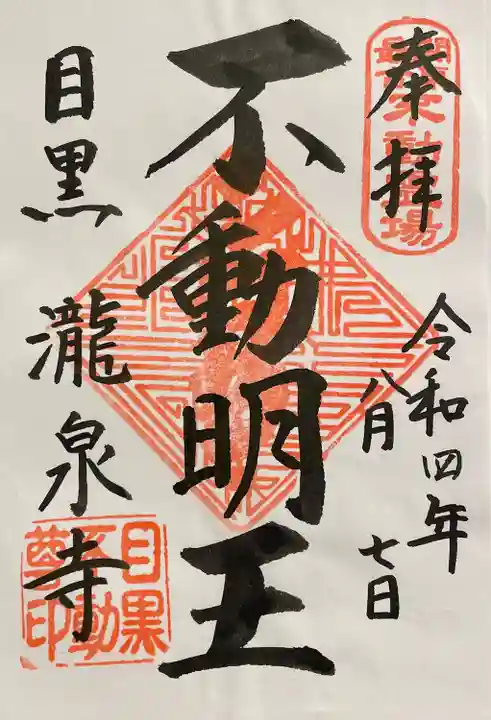 奉拝
令和四年
八月
七日
不動明王
目黒 瀧泉寺
目黒
不動
尊印